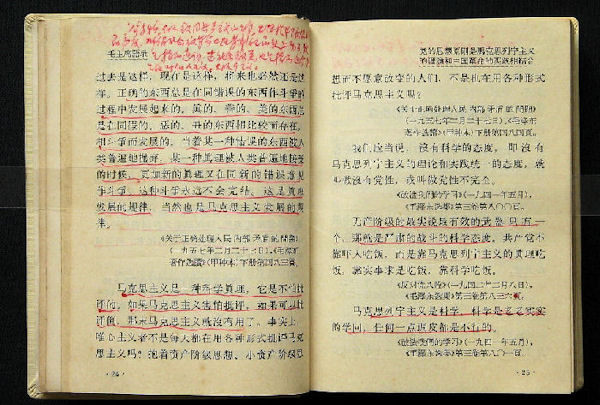 毛主席语录
过去是这样，现在是这样，将来也必然还是这
样。正确的东西总是在同错误的东西作斗争的
过程中发展起来的。真的、善的、美的东西总
是在同假的、恶的、丑的东西相比较而存在，
相斗争而发展的。当着某一种错误的东西被人
类普遍地抛弃，某一种真理被人类普遍地接受
的时候，更加新的真理又在同新的错误意见
作斗争。这种斗争永远不会完结。这是真理
发展的规律，当然也是马克思主义发展的规
律。
《关于正确处理人民内部矛盾的问题》
（一九五七年二月二十七日），《毛泽东
著作选读》（甲种本）下册第四八三页。
马克思主义是一种科学真理，它是不怕批
评的，如果马克思主义害怕批评，如果可以批
评倒，那末马克思主义就没有用了。事实上，
唯心主义者不是每天都在用各种形式批评马克
思主义吗？抱着资产阶级思想、小资产阶级思
·24·
党的思想原则是马克思列宁主义
的理论和中国革命的实践相结合
想而不愿意改变的人们，不是也在用各种形式
批评马克思主义吗？
《关于正确处理人民内部矛盾的问题》
（一九五七年二月二十七日），《毛泽东
著作选读》（甲种本）下册第四八四页。
我们应当说，没有科学的态度，即没有
马克思列宁主义的理论和实践统一的态度，就
叫做没有党性，或叫做党性不完全。
《改造我们的学习》（一九四一年五月），
《毛泽东选集》第三卷第八〇〇页。
无产阶级的最尖锐最有效的武器只有一
个，那就是严肃的战斗的科学态度。共产党不
靠吓人吃饭，而是靠马克思列宁主义的真理吃
饭，靠实事求是吃饭，靠科学吃饭。
《反对党八股》（一九四二年二月八日），
《毛泽东选集》第三卷第八三六页。
马克思列宁主义是科学，科学是老老实实
的学问，任何一点调皮都是不行的。
《改造我们的学习》（一九四一年五月），
《毛泽东选集》第三卷第八〇一页。
·25·